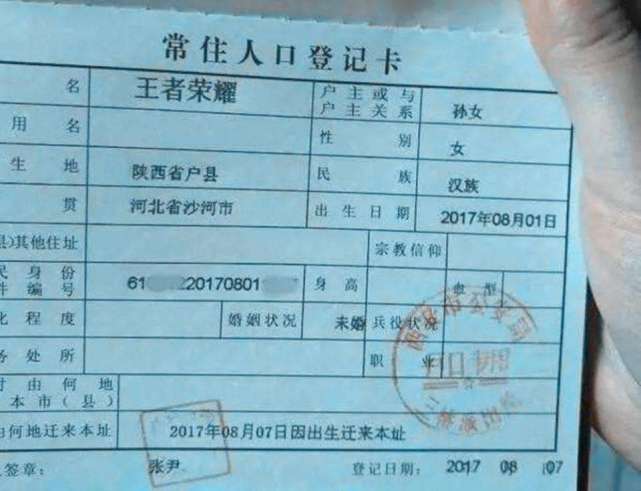 常住人口登记卡
名 王者荣耀 户主或与户主关系 孙女
用名 性别 女
生地 陕西省户县 民族 汉族
贯 河北省沙河市 出生日期 2017年08月01日
县)其他住址 宗教信仰
民身份件编号 61 220170801 身高 血型
化程度 婚姻状况 未婚 兵役状况
务处所 职业
时由何地本市(县)
由何地迁来本址 2017年08月07日因出生迁来本址
人签章: 张尹 登记日期: 2017 08 07
户口专用